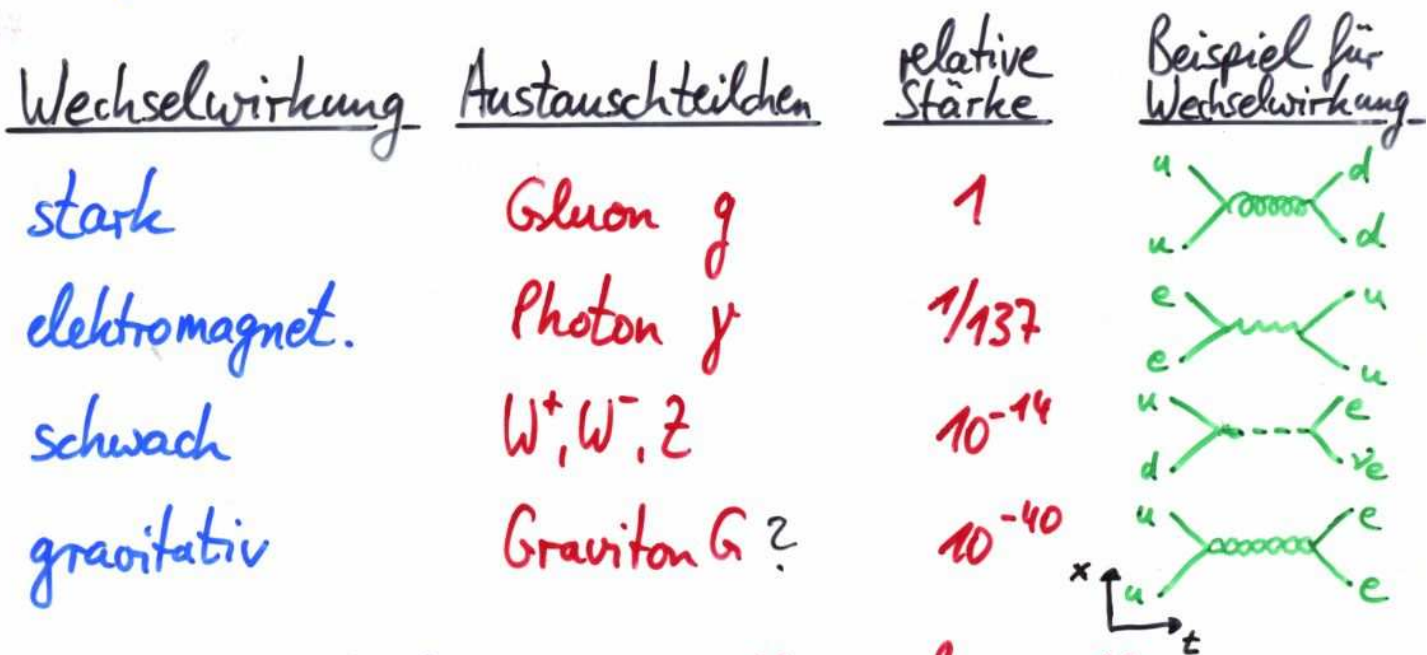 Wechselwirkung Austauschteilchen relative Stärke Beispiel für Wechselwirkung
stark Gluon g 1 u u d d
elektromagnet. Photon γ 1/137 e e u u
schwach W⁺, W⁻, Z 10⁻¹⁴ u d e νe
gravitativ Graviton G ? 10⁻⁴⁰ u u e e
x t